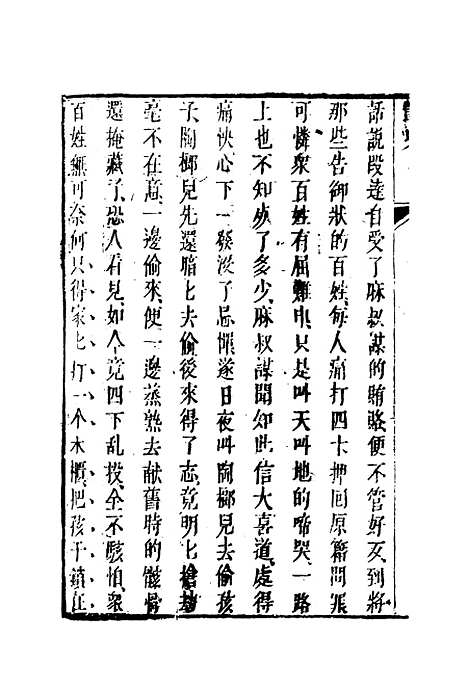 話說段達自受了麻叔謀的賄賂便不管好歹到將
那些告御狀的百姓每人痛打四十押回原籍問罪
可憐衆百姓有屈難申只是叫天叫地的啼哭一路
上也不知死了多少麻叔謀聞知此信大喜道處得
痛快心下一發沒了忌憚遂日夜叫陶榔兒去偷孩
子陶榔兒先還暗匕去偷後來得了志竟明匕搶劫
毫不在意一邊偷來便一邊蒸熟去献舊時的骸骨
還掩藏了恐人看見如今竟四下乱投全不駭怕衆
百姓無可奈何只得家匕打一个木櫃把孩子鎖在